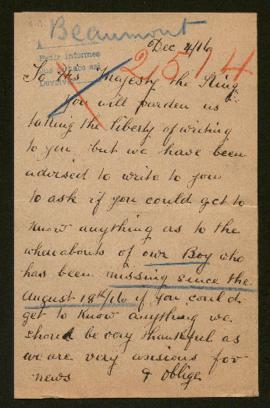 Beaumont
Dec 4/16
2,514
To His Majesty the King
You will pardon us
taking the liberty of writing
to you but we have been
advised to write to you
to ask if you could get to
know anything as to the
whereabouts of our Boy who
has been missing since the
August 18th/16 if you could
get to know anything we
should be very thankful as
we are very anxious for
news & oblige